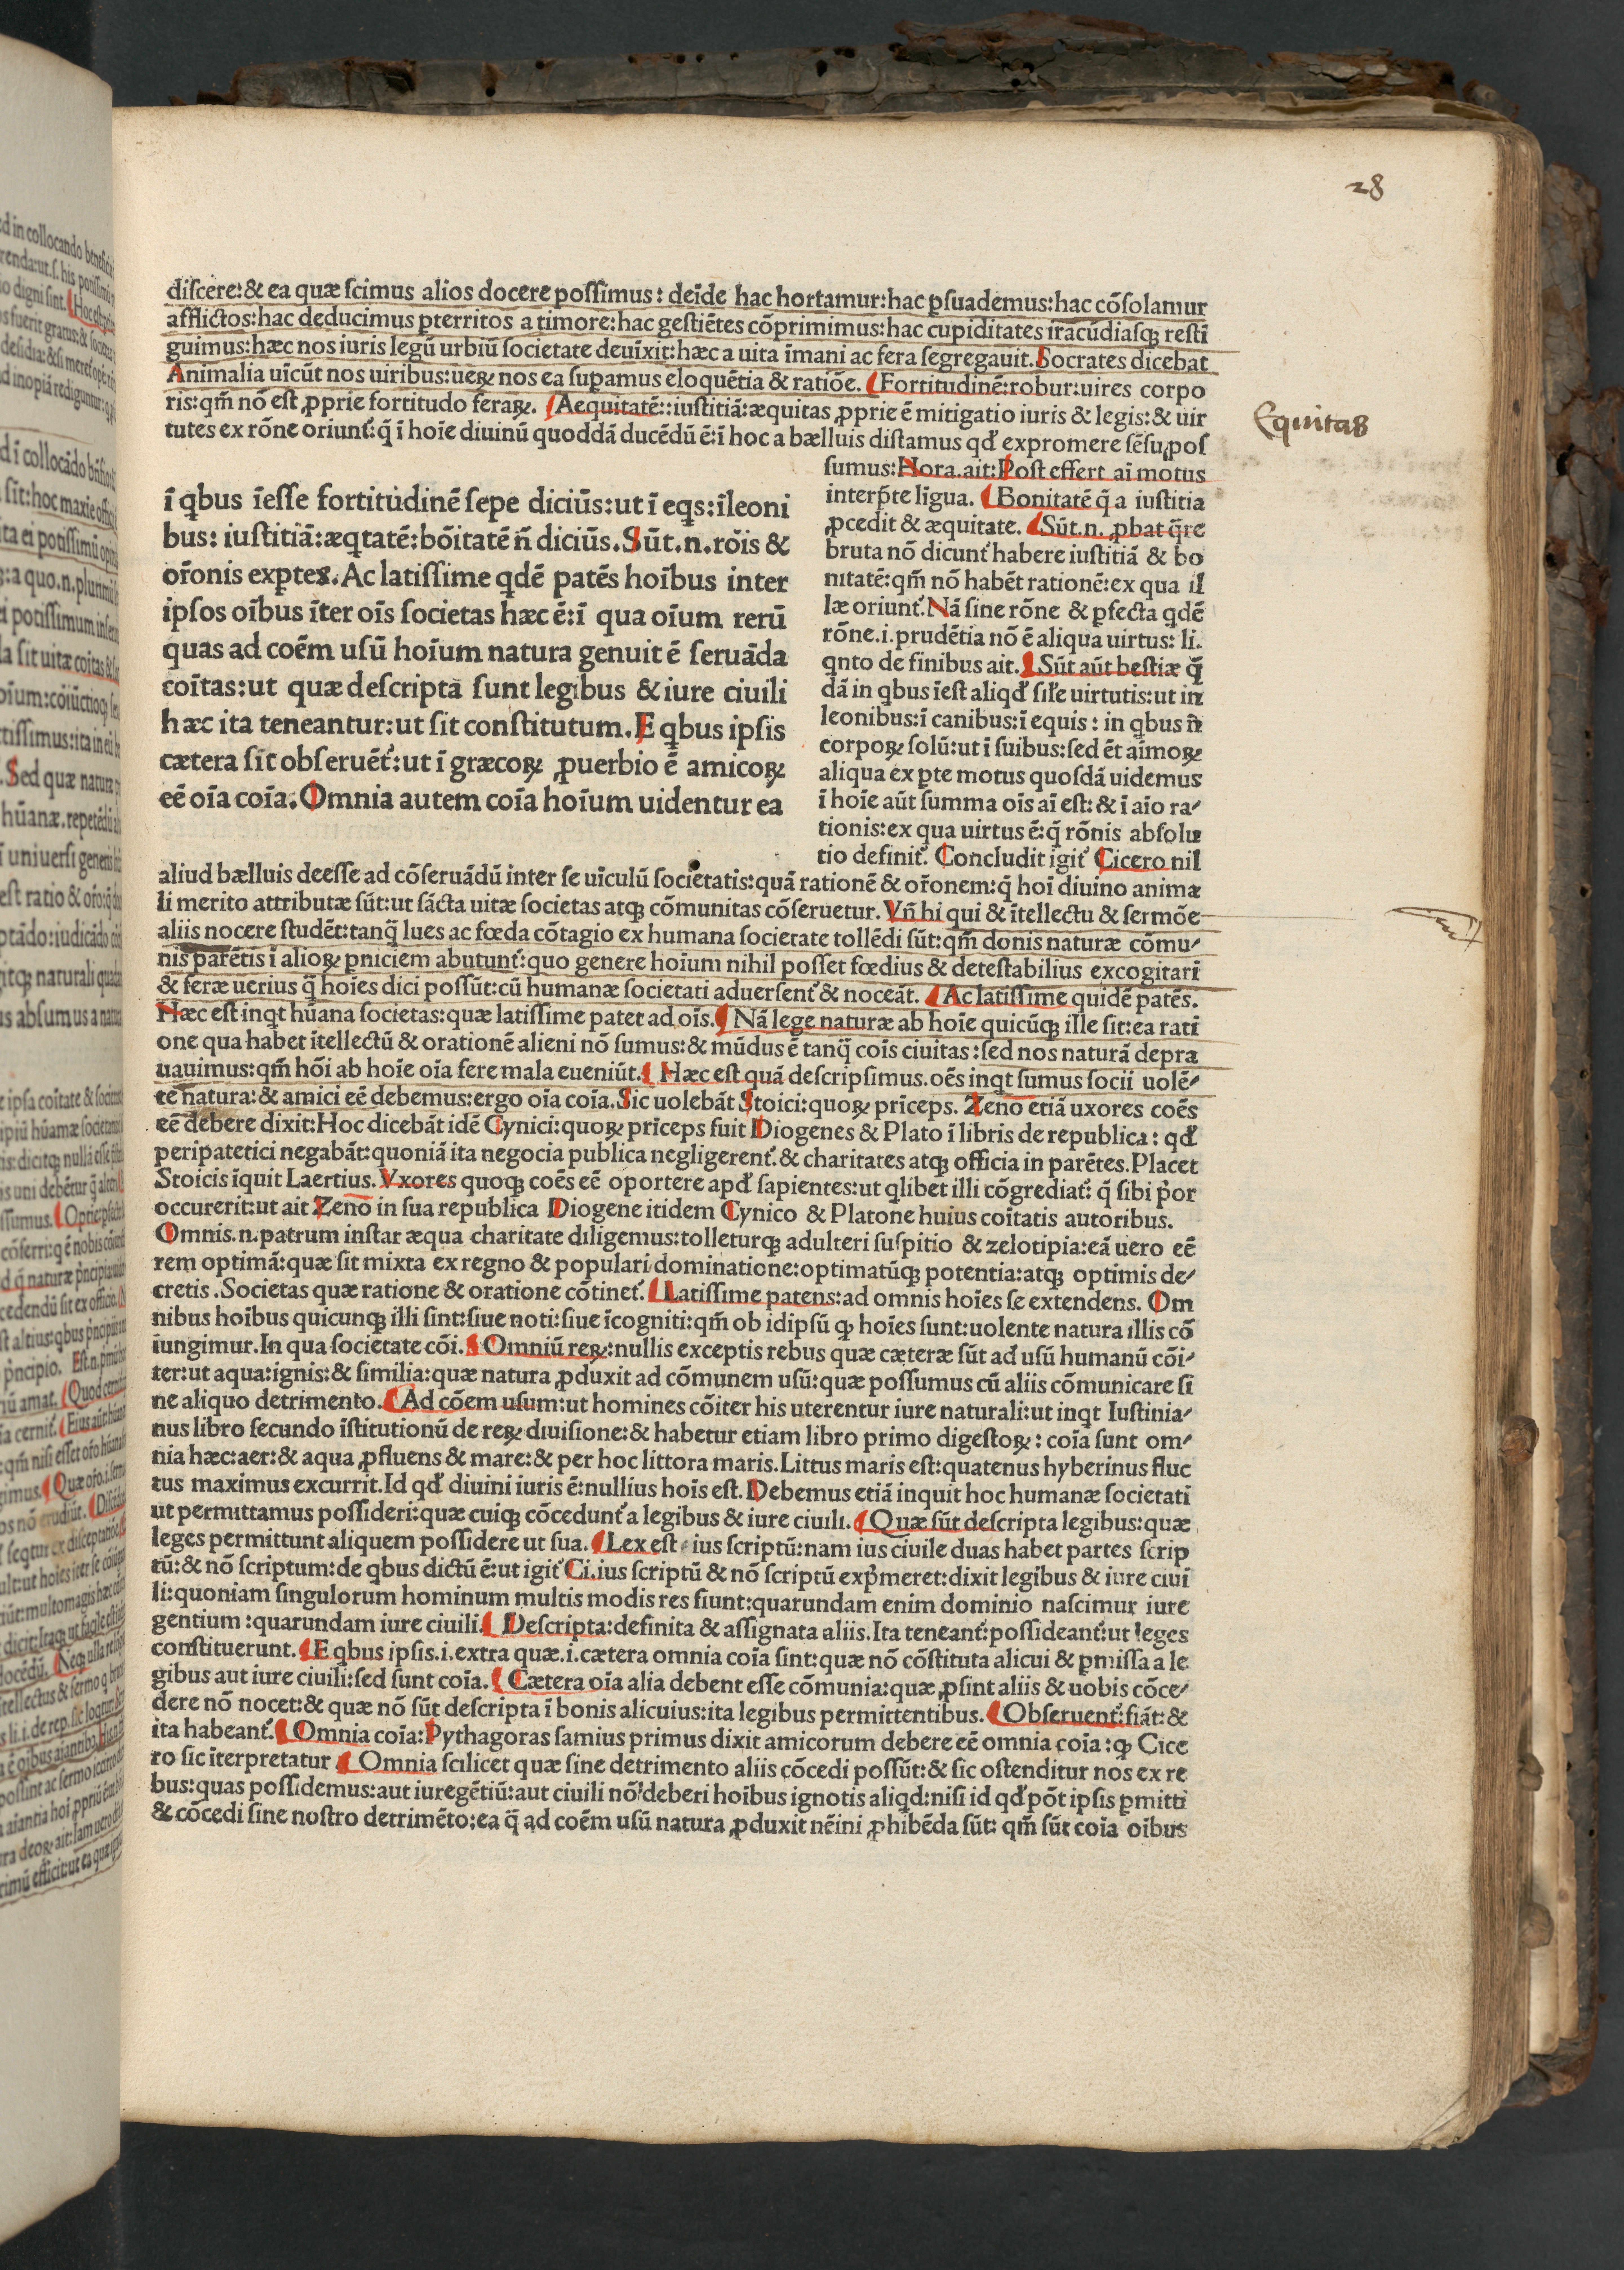 28
diſcere:& ea quæ ſcimus alios docere poſſimus: deīde hac hortamur:hac ꝑſuademus:hac cōſolamur
afflictos:hac deducimus ꝑterritos a timore:hac geſtiētes cōprimimus:hac cupiditates iracūdiaſqꝫ reſti
guimus:hæc nos iuris legū urbiū ſocietate deuīxit:hæc a uita īmani ac fera ſegregauit.Socrates dicebat
Animalia uīcūt nos uiribus:ueꝝ nos ea ſuꝑamus eloquētia & ratiōe. Fortitudinē:robur:uires corpo
ris:qm̄ nō eſt ꝓprie fortitudo feraꝝ. Aequitatē::iuſtitiā:æquitas ꝓprie ē mitigatio iuris & legis:& uir
Equitas
tutes ex rōne oriunt᷑:q̄ ī hoīe diuinū quoddā ducēdū ē:ī hoc a bælluis diſtamus qđ expromere ſēſu poſ
ſumus:Hora.ait:Poſt effert aī motus
interp̄te līgua. Bonitatē q̄ a iuſtitia
ꝓcedit & æquitate. Sūt.n. ꝓbat q̄re
bruta nō dicunt᷑ habere iuſtitiā & bo
nitatē:qm̄ nō habēt rationē:ex qua il
læ oriunt᷑.Nā ſine rōne & ꝑfecta qdē
rōne.i.prudētia nō ē aliqua uirtus: li.
qnto de finibus ait. Sūt aūt beſtiæ q̄
dā in qbus īeſt aliqđ ſiłe uirtutis:ut in
leonibus:ī canibus:ī equis: in qbus n̄
corpoꝝ ſolū:ut ī ſuibus:ſed ēt aīmoꝝ
aliqua ex ꝑte motus quoſdā uidemus
ī hoīe aūt ſumma oīs aī eſt:& ī aīo ra/
tionis:ex qua uirtus ē:q̄ rōnis abſolu
tio definit᷑. Concludit igit᷑ Cicero nil
ī qbus īeſſe fortitudinē ſepe diciūs:ut ī eqs:īleoni
bus: iuſtitiā:æqtatē:bōitatē n̄ diciūs.Sūt.n.rōis &
or̄onis exꝑtes.Ac latiſſime qdē patēs hoībus inter
ipſos oībus īter oīs ſocietas hæc ē:ī qua oīum rerū
quas ad coēm uſū hoīum natura genuit ē ſeruāda
coītas:ut quæ deſcripta ſunt legibus & iure ciuili
hæc ita teneantur:ut ſit conſtitutum.E qbus ipſis
cætera ſic obſeruēt᷑:ut ī græcoꝝ ꝓuerbio ē amicoꝝ
eē oīa coīa.Omnia autem coīa hoīum uidentur ea
aliud bælluis deeſſe ad cōſeruādū inter ſe uīculū ſocietatis:quā rationē & or̄onem:q̄ hoī diuino anima
li merito attributæ ſūt:ut ſācta uitæ ſocietas atqꝫ cōmunitas cōſeruetur.Vn̄ hi qui & ītellectu & ſermōe
aliis nocere ſtudēt:tanq̄ lues ac fœda cōtagio ex humana ſocietate tollēdi ſūt:qm̄ donis naturæ cōmu/
nis parētis ī alioꝝ ꝑniciem abutunt᷑:quo genere hoīum nihil poſſet fœdius & deteſtabilius excogitari
& feræ uerius q̄ hoīes dici poſſūt:cū humanæ ſocietati aduerſent᷑ & noceāt. Ac latiſſime quidē patēs.
Hæc eſt inqt hūana ſocietas:quæ latiſſime patet ad oīs. Nā lege naturæ ab hoīe quicūqꝫ ille ſit:ea rati
one qua habet ītellectū & orationē alieni nō ſumus:& mūdus ē tanq̄ coīs ciuitas:ſed nos naturā depra
uauimus:qm̄ hōi ab hoīe oīa fere mala eueniūt. Hæc eſt quā deſcripſimus.oēs inqt ſumus ſocii uolē/
te natura:& amici eē debemus:ergo oīa coīa.Sic uolebāt Stoici:quoꝝ prīceps. Zeno etiā uxores coēs
eē debere dixit:Hoc dicebāt idē Cynici:quoꝝ prīceps fuit Diogenes & Plato ī libris de republica: qđ
peripatetici negabāt:quoniā ita negocia publica negligerent᷑.& charitates atqꝫ officia in parētes.Placet
Stoicis īquit Laertius.Vxores quoqꝫ coēs eē oportere apđ ſapientes:ut qlibet illi cōgrediat᷑: q̄ ſibi p̄or
occurerit:ut ait Zeno in ſua republica Diogene itidem Cynico & Platone huius coītatis autoribus.
Omnis.n.patrum inſtar æqua charitate diligemus:tolleturqꝫ adulteri ſuſpitio & zelotipia:eā uero eē
rem optimā:quæ ſit mixta ex regno & populari dominatione:optimatūqꝫ potentia:atqꝫ optimis de/
cretis.Societas quæ ratione & oratione cōtinet᷑. Latiſſime patens:ad omnis hoīes ſe extendens. Om
nibus hoībus quicunqꝫ illi ſint:ſiue noti:ſiue īcogniti:qm̄ ob idipſū ꝙ hoīes ſunt:uolente natura illis cō
iungimur.In qua ſocietate cōi. Omniū reꝝ:nullis exceptis rebus quæ cæteræ ſūt ad uſū humanū cōi/
ter:ut aqua:ignis:& ſimilia:quæ natura ꝓduxit ad cōmunem uſū:quæ poſſumus cū aliis cōmunicare ſi
ne aliquo detrimento. Ad cōem uſum:ut homines cōiter his uterentur iure naturali:ut inqt Iuſtinia/
nus libro ſecundo īſtitutionū de reꝝ diuiſione:& habetur etiam libro primo digeſtoꝝ: coīa ſunt om/
nia hæc:aer:& aqua ꝓfluens & mare:& per hoc littora maris.Littus maris eſt:quatenus hyberinus fluc
tus maximus excurrit.Id qđ diuini iuris ē:nullius hoīs eſt.Debemus etiā inquit hoc humanæ ſocietati
ut permittamus poſſideri:quæ cuiqꝫ cōcedunt᷑ a legibus & iure ciuili. Quæ ſūt deſcripta legibus:quæ
leges permittunt aliquem poſſidere ut ſua. Lex eſt ius ſcriptū:nam ius ciuile duas habet partes ſcrip
tū:& nō ſcriptum:de qbus dictū ē:ut igit᷑ Ci.ius ſcriptū & nō ſcriptū exp̄meret:dixit legibus & iure ciui
li:quoniam ſingulorum hominum multis modis res fiunt:quarundam enim dominio naſcimur iure
gentium:quarundam iure ciuili. Deſcripta:definita & aſſignata aliis.Ita teneant᷑:poſſideant᷑:ut leges
conſtituerunt. E qbus ipſis.i.extra quæ.i.cætera omnia coīa ſint:quæ nō cōſtituta alicui & ꝑmiſſa a le
gibus aut iure ciuili:ſed ſunt coīa. Cætera oīa alia debent eſſe cōmunia:quæ ꝓſint aliis & uobis cōce/
dere nō nocet:& quæ nō ſūt deſcripta ī bonis alicuius:ita legibus permittentibus. Obſeruent᷑:fiāt:&
ita habeant᷑. Omnia coīa:Pythagoras ſamius primus dixit amicorum debere eē omnia coīa:ꝙ Cice
ro ſic īterpretatur Omnia ſcilicet quæ ſine detrimento aliis cōcedi poſſūt:& ſic oſtenditur nos ex re
bus:quas poſſidemus:aut iuregētiū:aut ciuili nō deberi hoībus ignotis aliqd:niſi id qđ pōt ipſis ꝑmitti
& cōcedi ſine noſtro detrimēto:ea q̄ ad coēm uſū natura ꝓduxit nēini ꝓhibēda ſūt: qm̄ ſūt coīa oībus